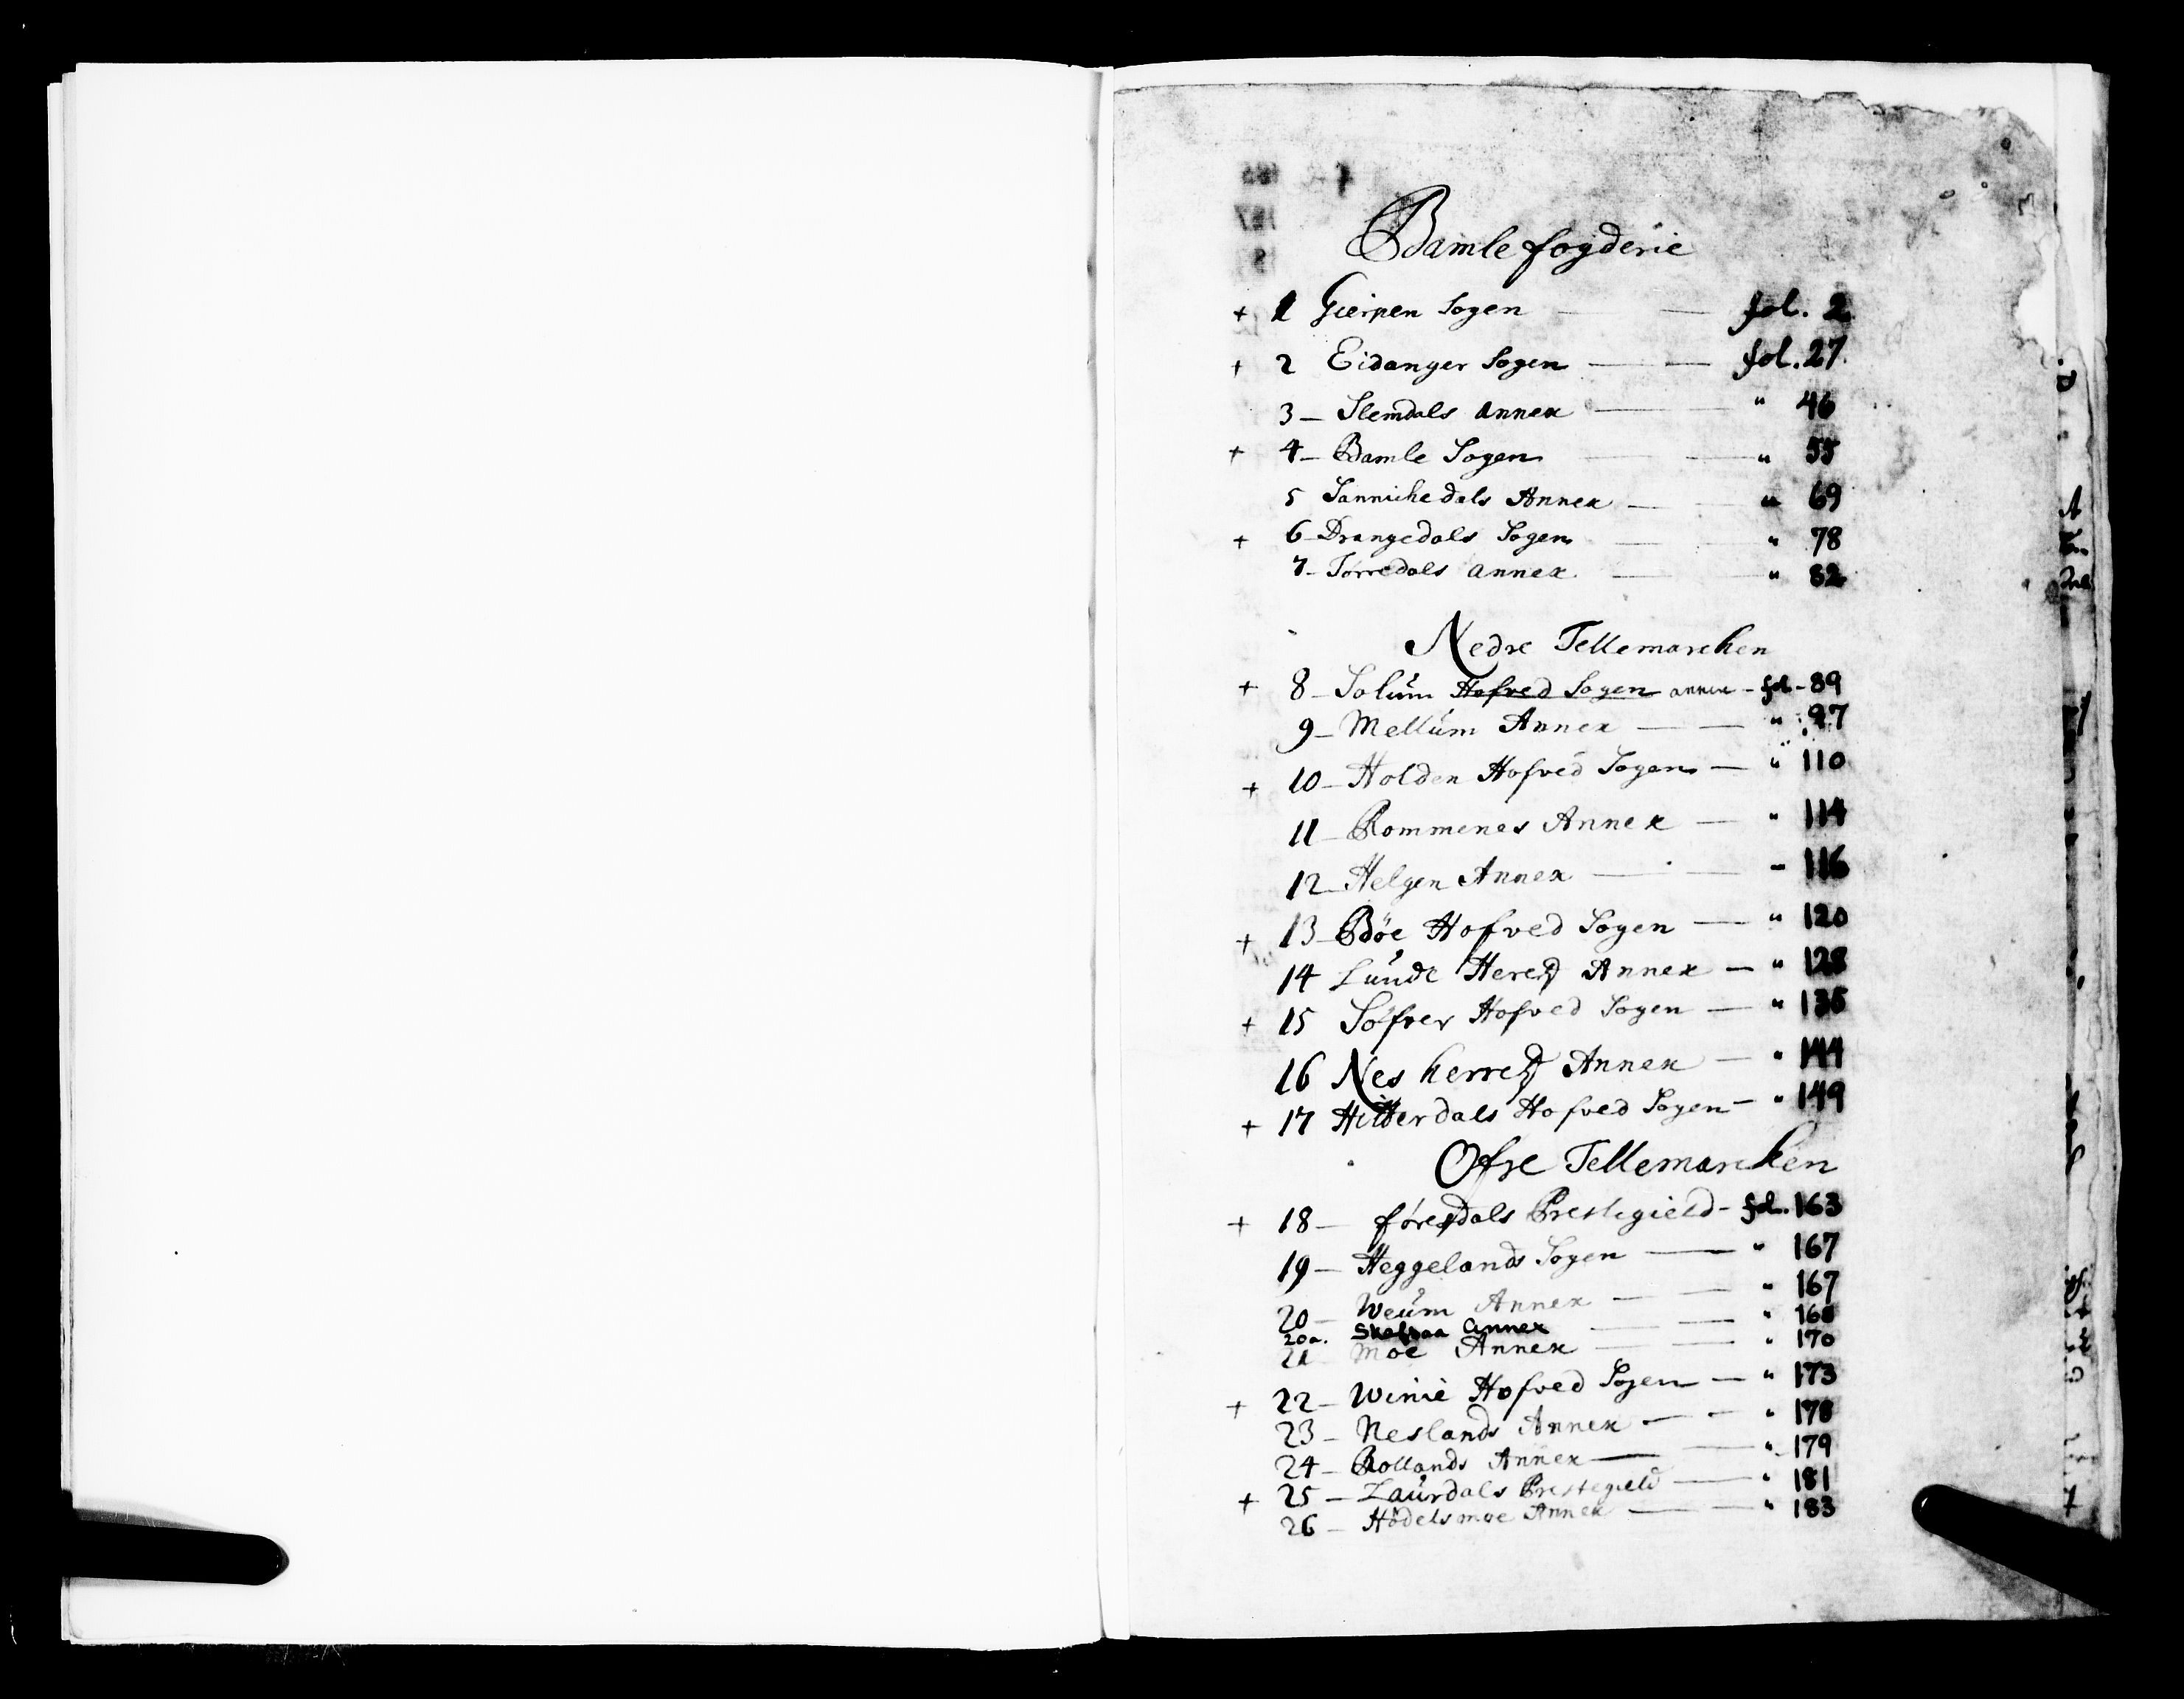 Bamle fogderie
+ 1 Gierpen Sogen — — fol. 2
+ 2 Eidanger Sogen — — fol. 27.
3 — Slemdals Annex — " 46
+ 4 — Bamle Sogen — — " 55
5 Sannichedals Annex — — " 69
+ 6 — Drangedals Sogen — — " 78
7 — Tørredals annex — — " 82
Nedre Tellemarchen
+ 8 — Solum Hofved Sogen annex — fol — 89
9 — Mellum Annex — — " 97
+ 10 — Holden Hofved Sogen — " 110
11 — Rommenes Annex — " 114
12 — Helgen Annex — — " 116
+ 13 — Bøe Hofved Sogen — " 120
14 Lunde Hered Annex — " 128
+ 15 Søfver Hofved Sogen — " 135
16 Nes herred Annex — " 144
+ 17 Hitterdals Hofved Sogen — " 149
Ofre Tellemarchen
+ 18 —føresdals Prestegield — fol. 163
19 — Heggelands Sogen — " 167
20 — Weum Annex — — " 167
20a. Skafsaa Annex — — " 168
21 Moe Annex — — " 170
+ 22 — Winie Hofved Sogen — " 173
23 — Neslands Annex — — " 178
24 — Rollands Annex — — " 179
+ 25 — Laurdals Prestegield — " 181
26 — Hødelsmoe Annex — — " 183